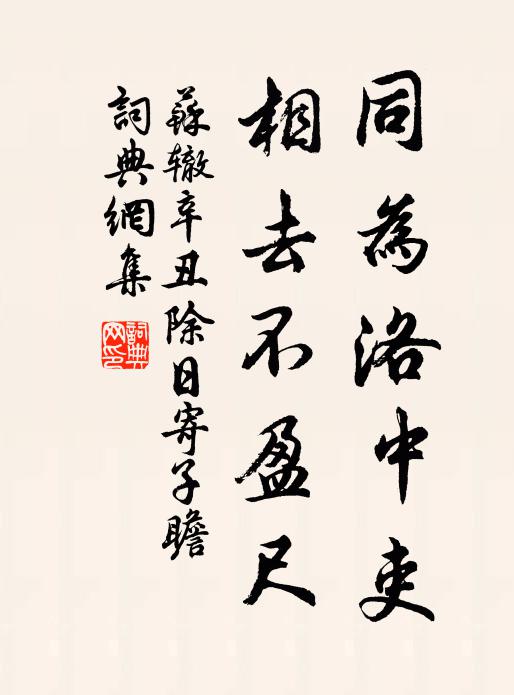 同為洛中吏
相去不盈尺
蘇辙辛丑除日寄子瞻
詞典網集
詞典网印